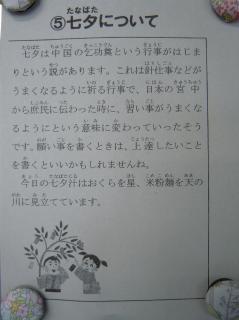 ⑤七夕について
七夕は中国の乞功奠という行事がはじま
りという説があります。これは針仕事などが
うまくなるように祈る行事で、日本の宮中
から庶民に伝わった時に、習い事がうまくな
るようにという意味に変わっていったそう
です。願い事を書くときは、上達したいこと
を書くといいかもしれませんね。
今日の七夕汁はおくらを星、米粉麺を天の
川に見立てています。